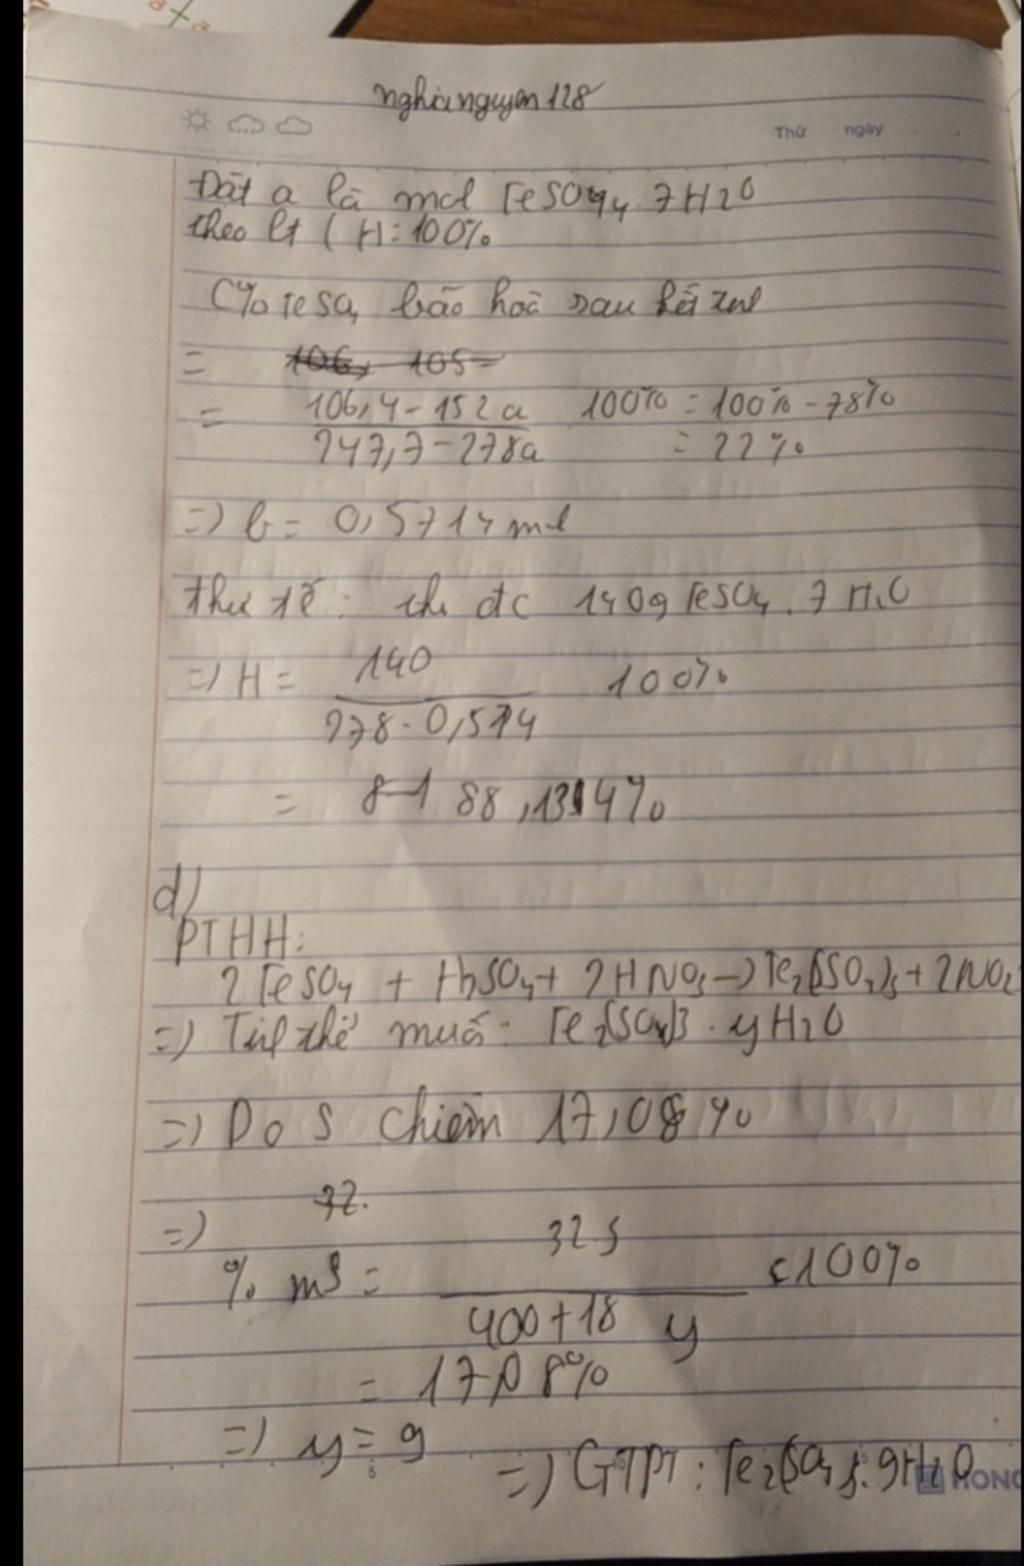 nghianguyen128
Thứ ngày
Đặt a là mol FeSO4 . 7H2O
theo lt ( H = 100%
C% FeSO4 bão hoà sau kết tinh
=
= 106,4 - 152a / 247,7 - 278a 100% = 100% - 78%
= 22%
=> b = 0,5714 mol
thực tế : thu đc 140g FeSO4 . 7 H2O
=> H = 140 / 278 . 0,574 100%
= 88,1314%
d)
PTHH:
2FeSO4 + H2SO4 + 2HNO3 -> Fe2(SO4)3 + 2NO2
=> Tinh thể muối : Fe2(SO4)3 . yH2O
=> Do S chiếm 17,08%
=>
% mS = 32.3 / 400 + 18 y .100%
= 17,08%
=> y = 9
=> CTPT : Fe2(SO4)3. 9H2O
HONG